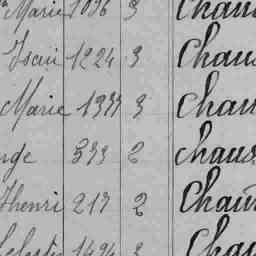 Marie 1036 3 Chau
Isaii 1224 3 Chaus
Marie 1377 3 Chau
nge 373 2 Chaus
Jhenri 217 2 Chau
Celestin 1494 3 Chau